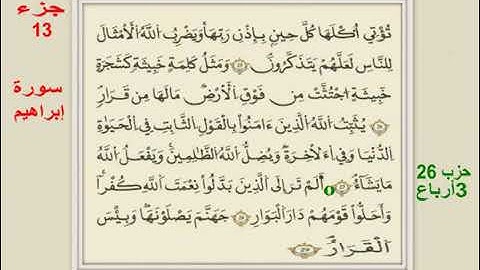 جزء
13
سورة
إبراهيم
تُؤْتِي أُكُلَهَا كُلَّ حِينٍ بِإِذْنِ رَبِّهَا وَيَضْرِبُ اللَّهُ الْأَمْثَالَ
لِلنَّاسِ لَعَلَّهُمْ يَتَذَكَّرُونَ ۝ وَمَثَلُ كَلِمَةٍ خَبِيثَةٍ كَشَجَرَةٍ
خَبِيثَةٍ اجْتُثَّتْ مِن فَوْقِ الْأَرْضِ مَا لَهَا مِن قَرَارٍ
۝ يُثَبِّتُ اللَّهُ الَّذِينَ ءَامَنُوا بِالْقَوْلِ الثَّابِتِ فِي الْحَيَوٰةِ
الدُّنْيَا وَفِي الْءَاخِرَةِ وَيُضِلُّ اللَّهُ الظَّٰلِمِينَ وَيَفْعَلُ اللَّهُ
مَا يَشَآءُ ۝ أَلَمْ تَرَ إِلَى الَّذِينَ بَدَّلُوا نِعْمَتَ اللَّهِ كُفْرًا
وَأَحَلُّوا قَوْمَهُمْ دَارَ الْبَوَارِ ۝ جَهَنَّمَ يَصْلَوْنَهَا وَبِئْسَ
الْقَرَارُ
حزب 26
3أرباع